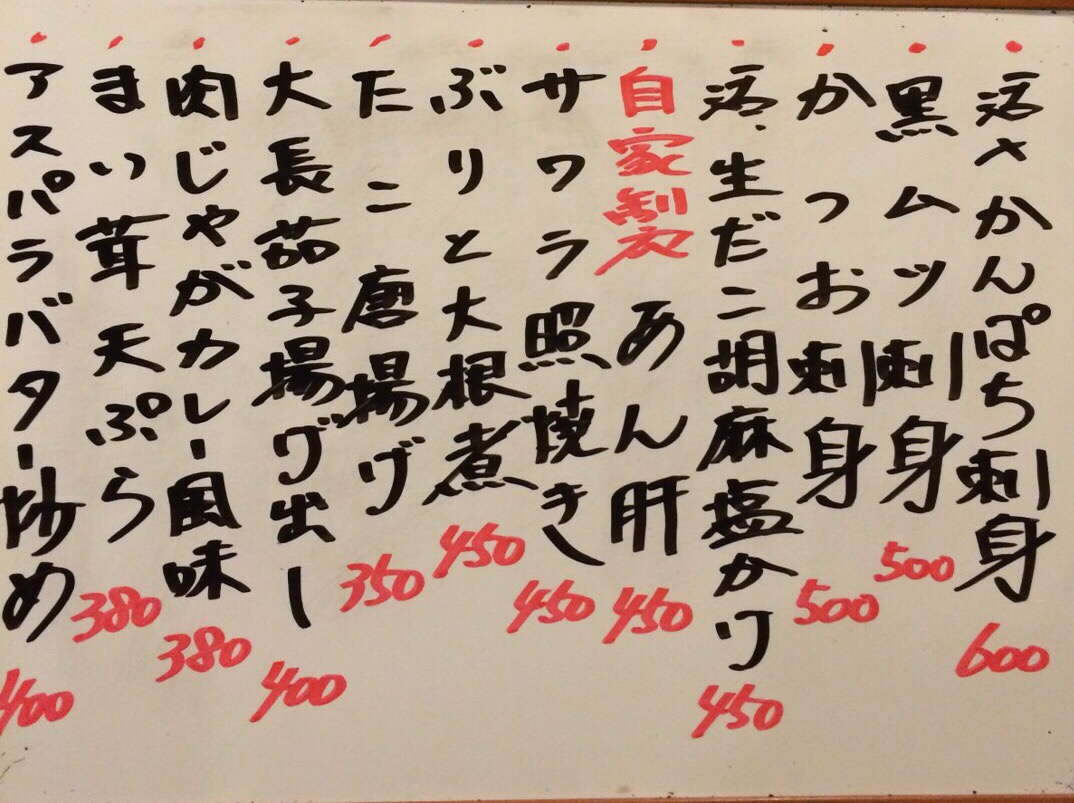 活〆かんぱち刺身 600
黒ムツ刺身 500
かつお刺身 500
活、生だこ胡麻塩かり 450
自家製あん肝 450
サワラ照焼き 450
ぶりと大根煮 450
たこ唐揚げ 350
大長茄子揚げ出し 400
肉じゃがカレー風味 380
まい茸天ぷら 380
アスパラバター炒め 400